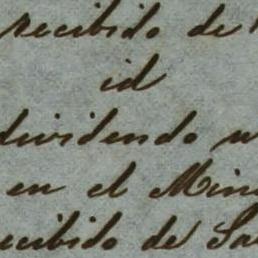 recibido de
id
dividendo
en el Min
ecibido de Sa